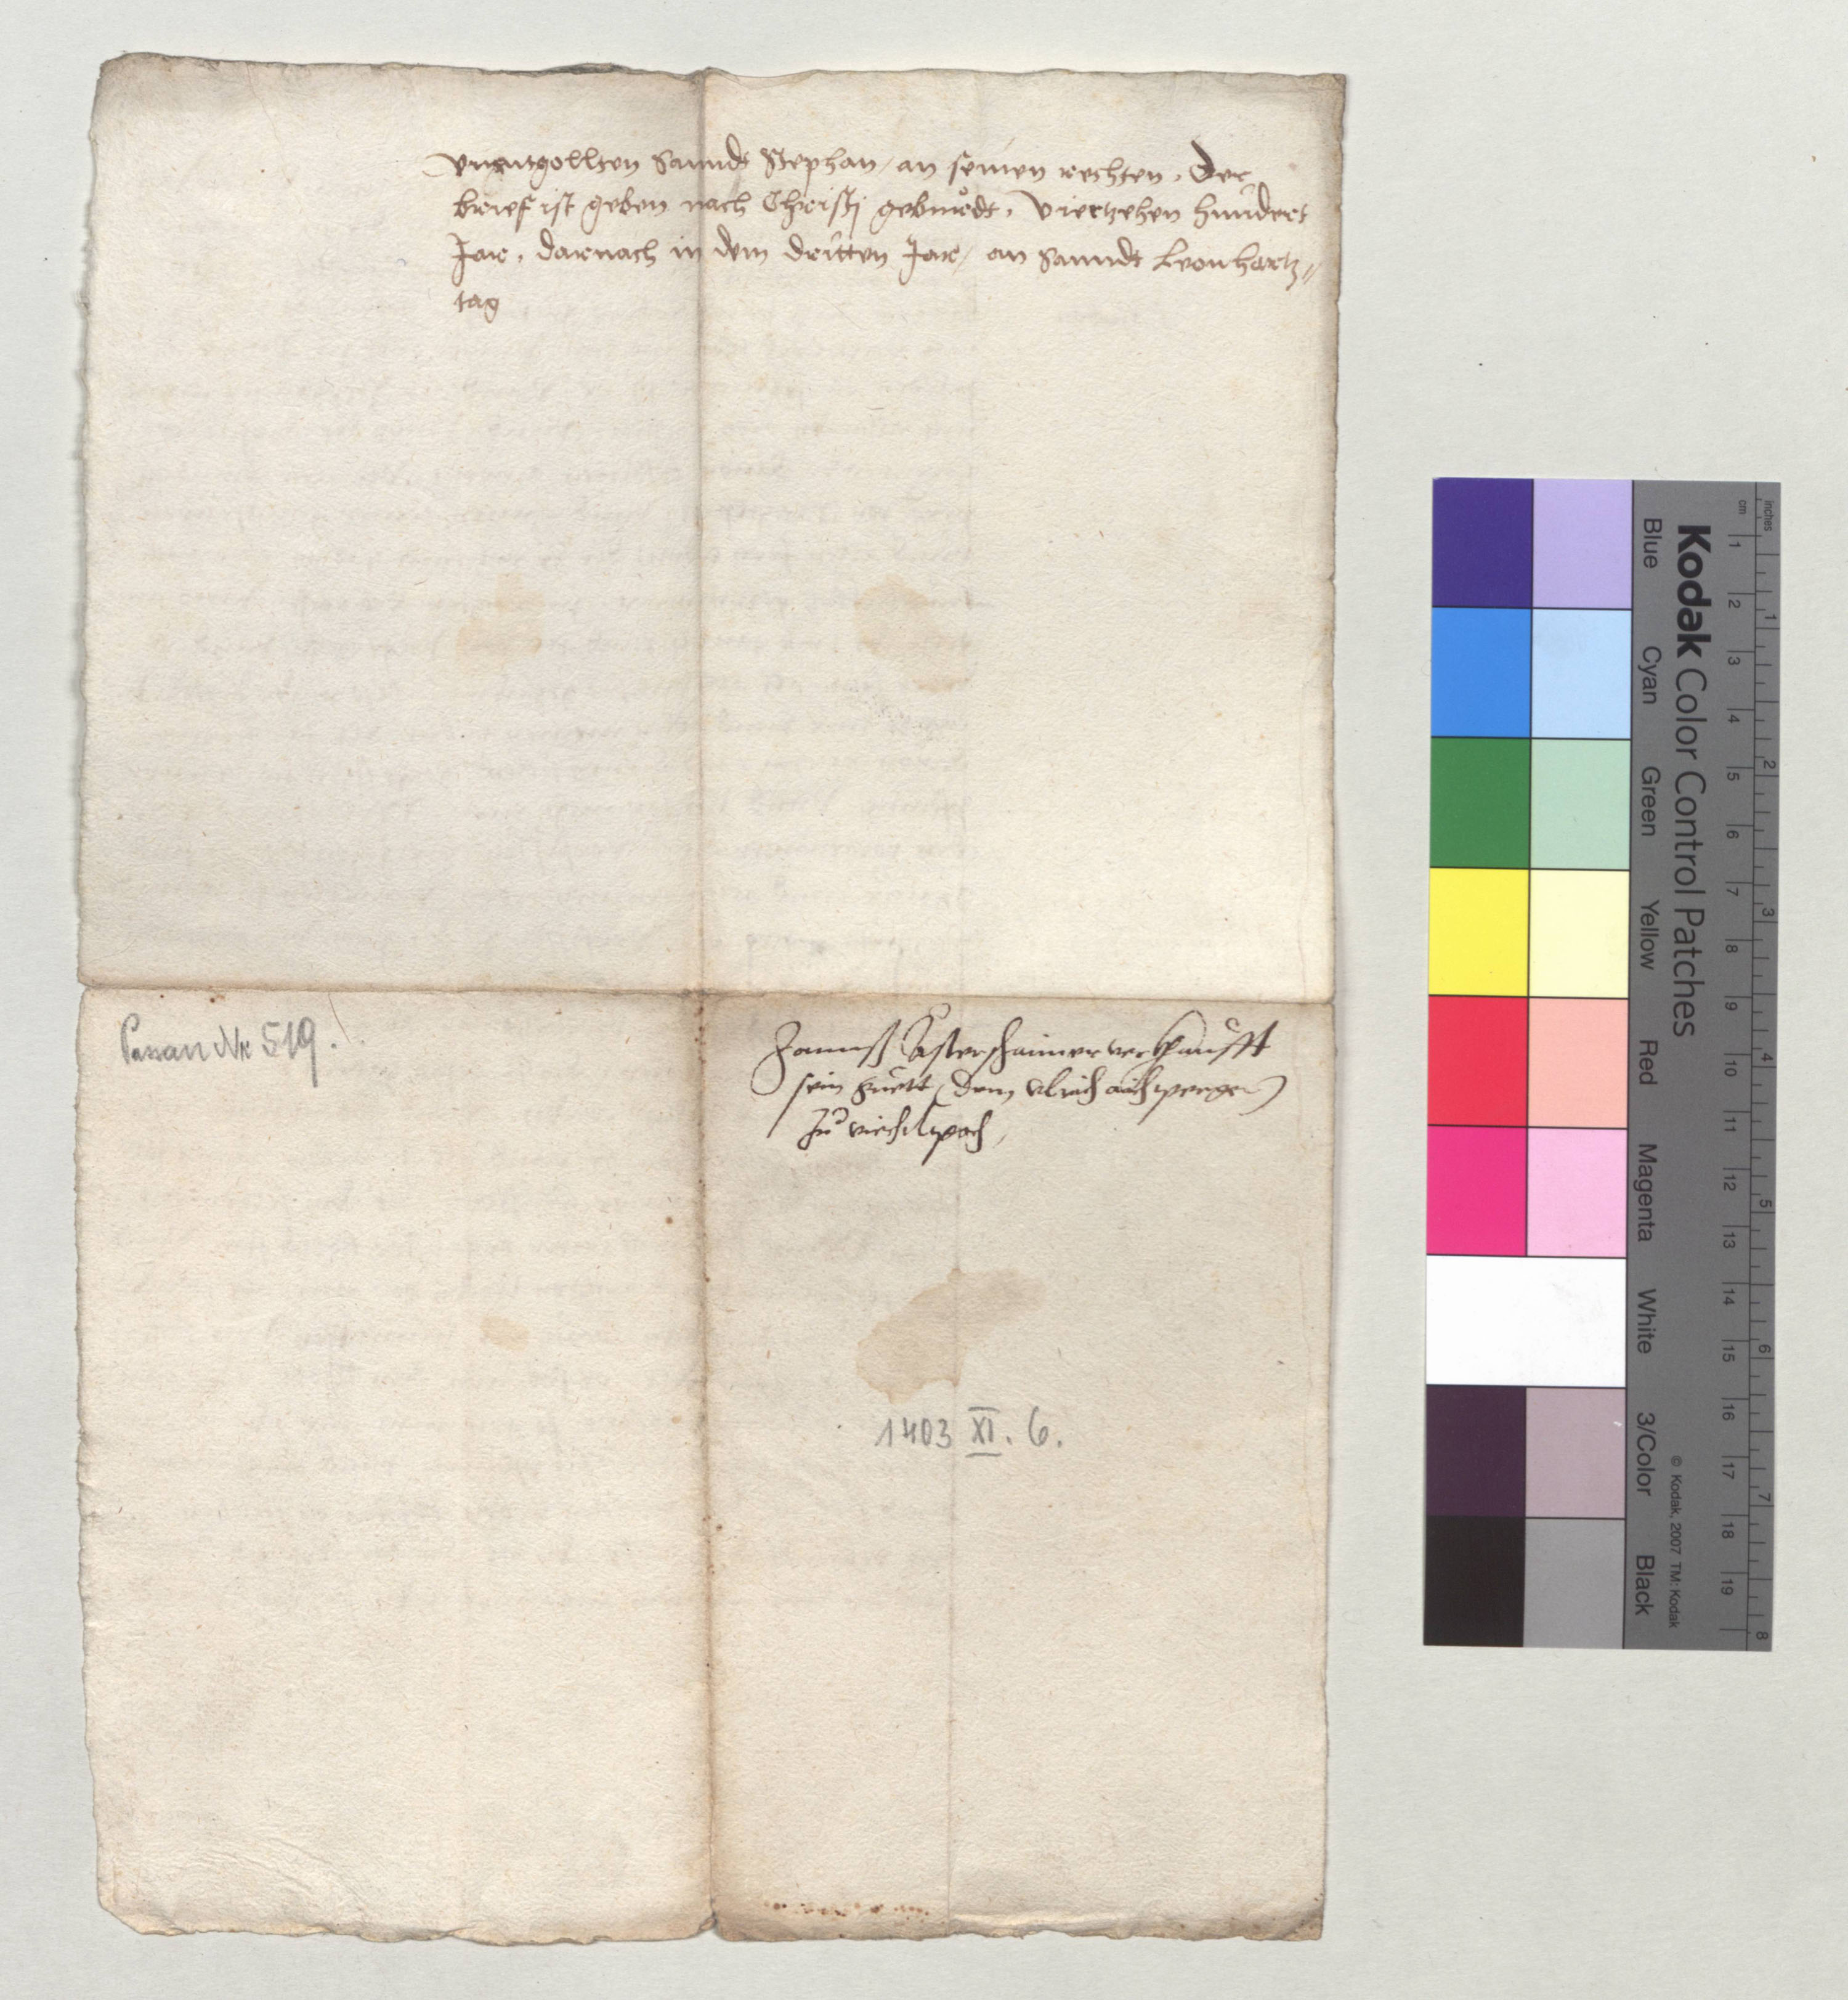 vnentgollten Sanndt Stephan / an seinen rechten. Der
brief ist geben nach Christj geburdt. Viertzehen hundert
Jar. darnach in dem dritten Jar / an Sanndt Leonhartz //
tag
Passau Nr. 519.
Hannß Astershaimer verkhaufft
sein guett (dem Vlrich aichperger)
zu viechtpach
1403 XI. 6.
Kodak Color Control Patches
Blue Cyan Green Yellow Red Magenta White 3/Color Black
inches 1 2 3 4 5 6 7 8
cm 1 2 3 4 5 6 7 8 9 10 11 12 13 14 15 16 17 18 19
© Kodak, 2007 TM: Kodak